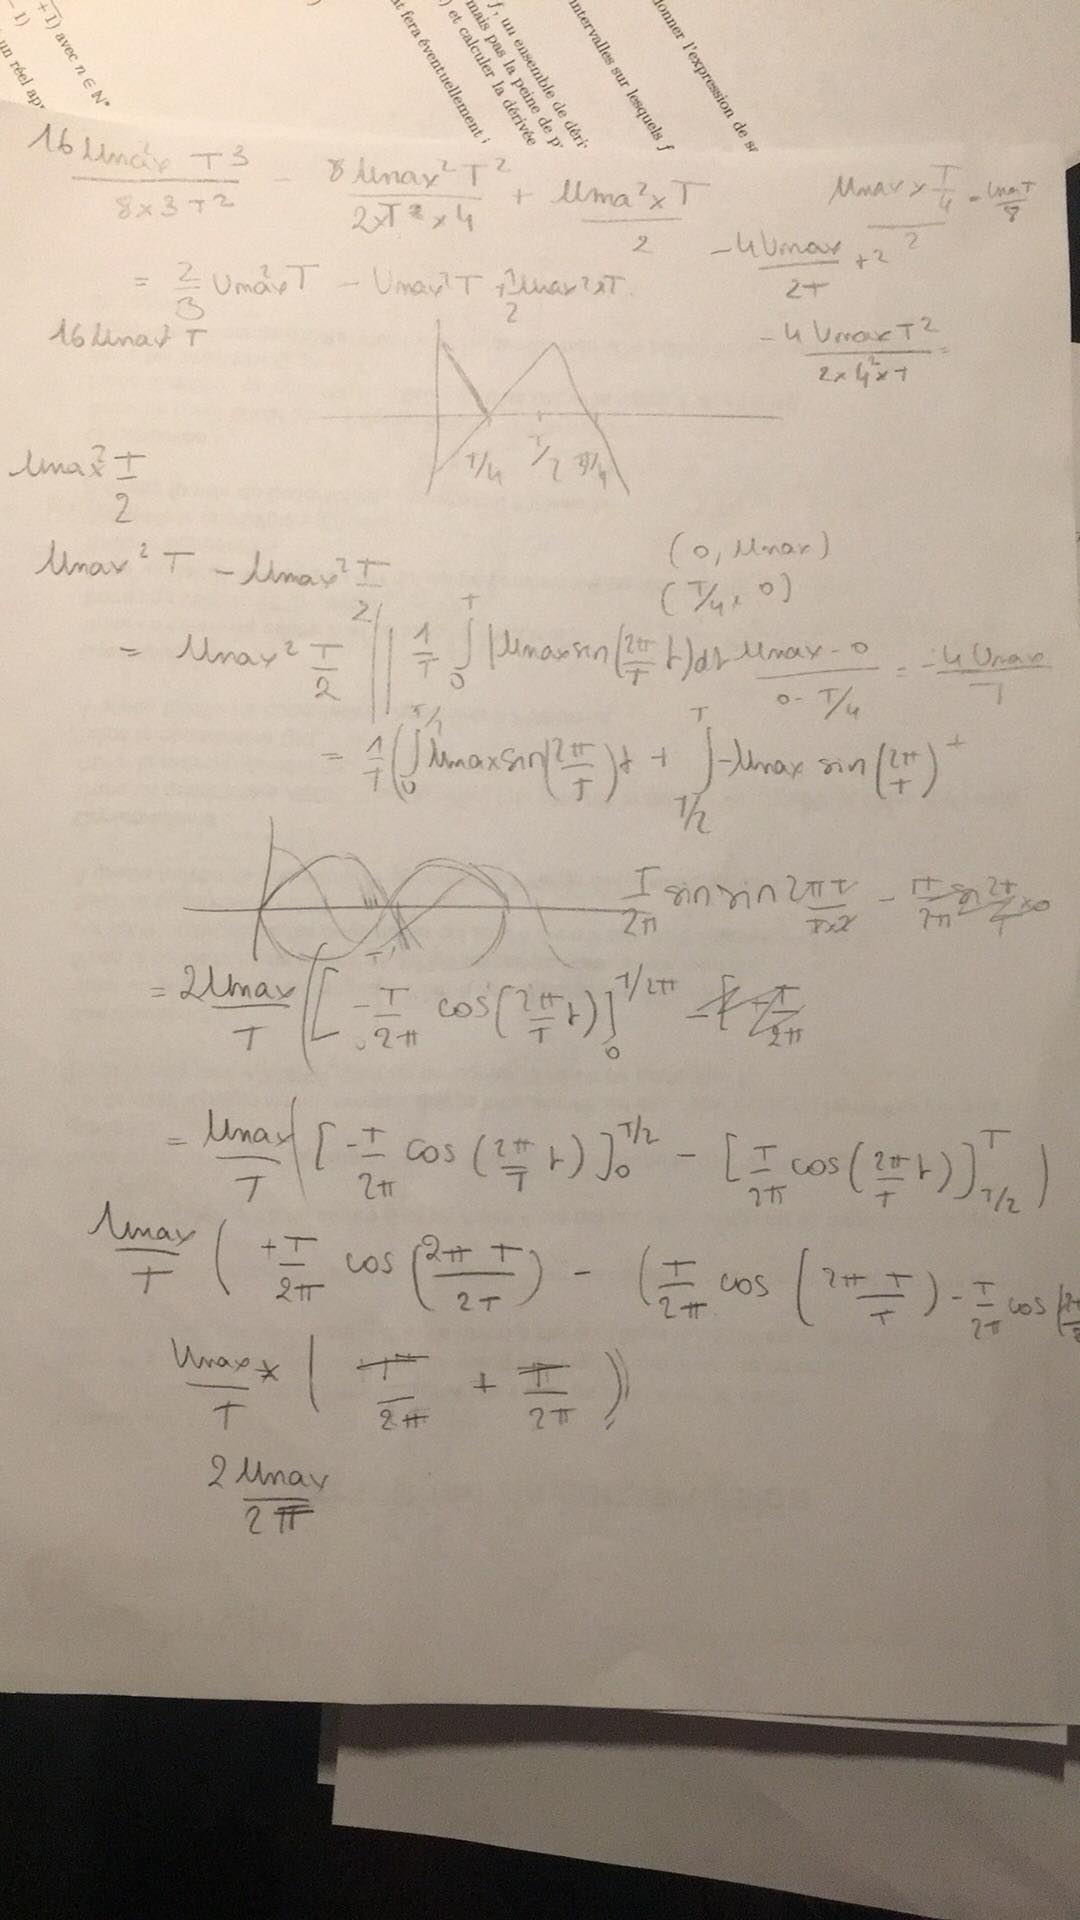 +1) avec n ∈ N*
-1)
un réel
f, un ensemble de déri
mais pas la peine de p
) et calculer la dérivée
t fera éventuellement
intervalles sur lesquels f
donner l'expression de s
16 Umax² T³ / 8×3T² - 8 Umax² T² / 2×T²×4 + Uma²×T / 2
Umax × T/4 / 2 = UmaxT / 8
= 2/3 Umax²T - Umax²T + 1/2 Umax²×T
-4Umax / 2T + 2
16 Umax² T
-4 Umax T² / 2×4²×T =
T/4 T/2 3T/4
Umax² T/2
Umax² T - Umax² T/2
(0, Umax)
(T/4, 0)
= Umax² T/2
1/T ∫₀ᵀ |Umax sin(2π/T t) dt
Umax - 0 / 0 - T/4 = -4 Umax / T
= 1/T (∫₀^T/2 Umax sin(2π/T) t + ∫_T/2^T -Umax sin(2π/T) t
T/2π sin sin 2πT / T×2 - T/2π sin 2π/T ×0
= 2Umax/T ([-T/2π cos(2π/T t)]₀^T/2π
= Umax/T ([-T/2π cos(2π/T t)]₀^T/2 - [T/2π cos(2π/T t)]_T/2^T)
Umax/T (+T/2π cos(2π T / 2T) - (T/2π cos(2π T / T) - T/2π cos(
Umax/T × (T/2π + T/2π))
2 Umax / 2π